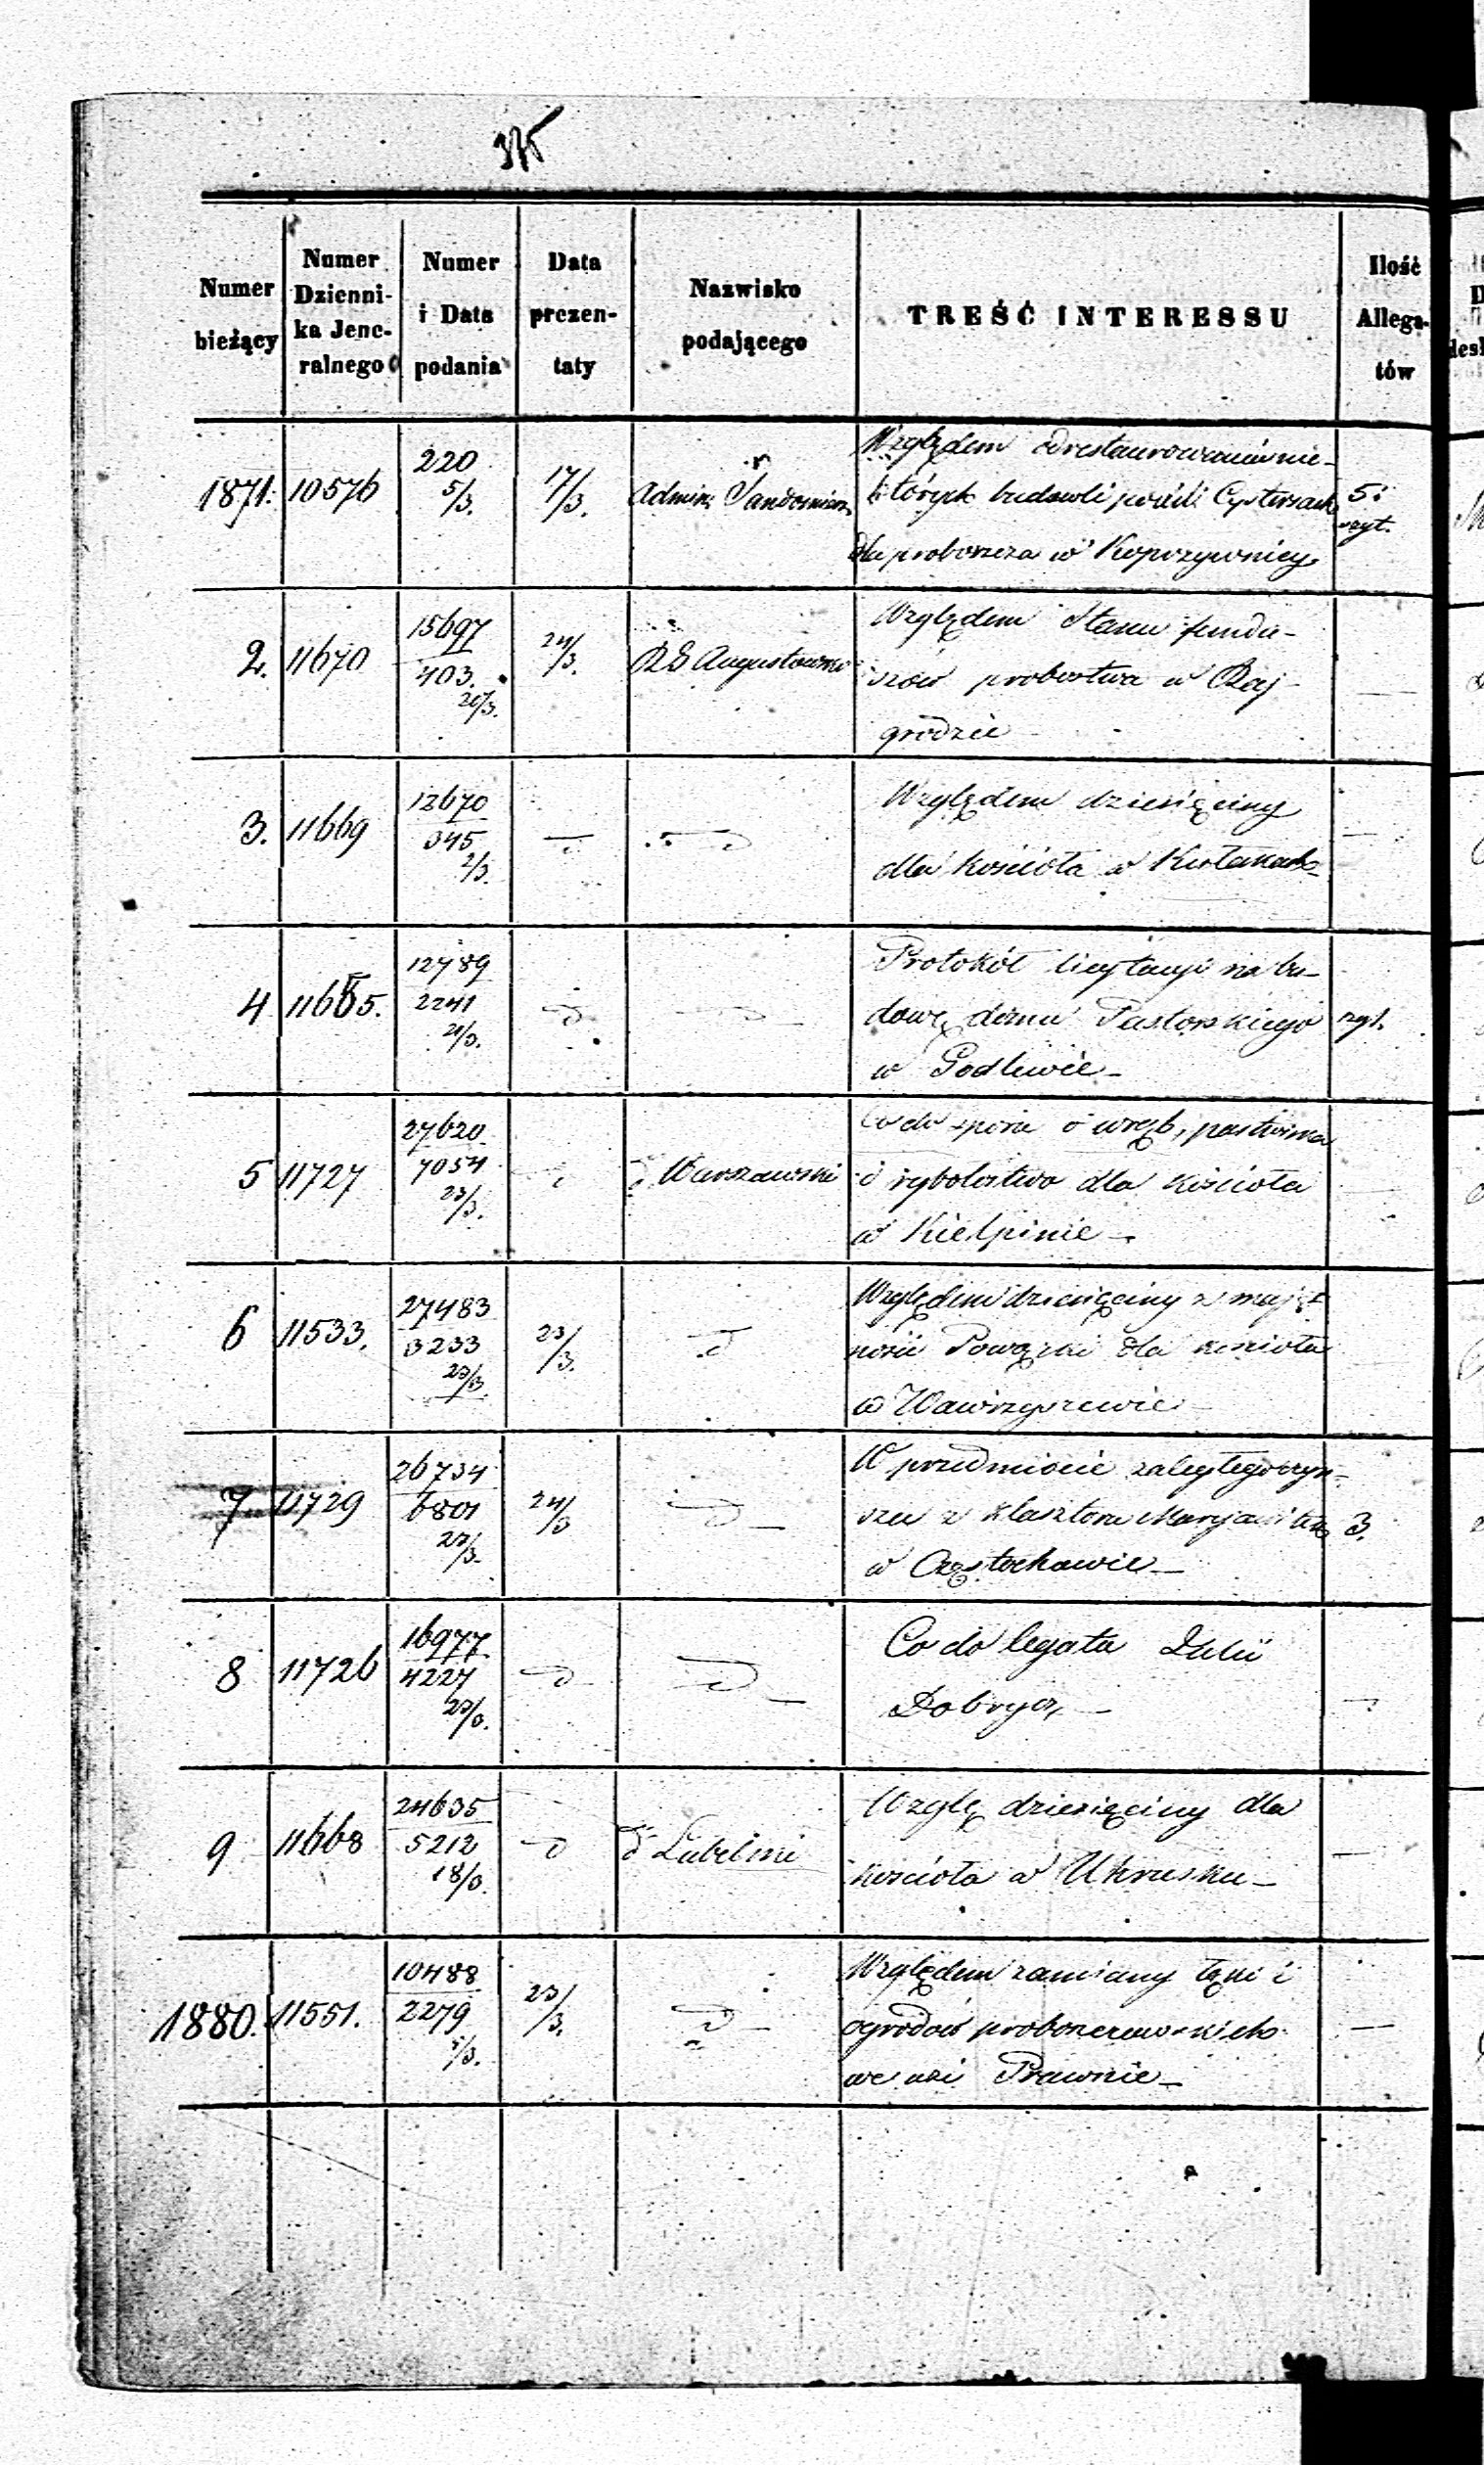 375
Numer bieżący
Numer Dzienni-ka Jene-ralnego
Numer i Data podania
Data prezen-taty
Nazwisko podającego
TREŚĆ INTERESSU
Ilość Allega-tów
1871. 10576 220 5/3. 17/3. Admin: Sandomiers. Względem odrestaurowania nie-
których budowli po Cystersach 5 i
dla proboszcza w Koprzywnicy szyt.
2. 11670 15697 403. 20/3. 24/3. RG Augustowski Względem Stanu fundu-
szów probostwa w Raj-
grodzie
3. 11669 12670 345 2/3. — d — — d Względem dziesięciny —
dla kościoła w
4 11665. 12789 2241 21/3. d — d — Protokół licytacyi na bu-
dowę domu Pastorskiego szyt.
w Godlewie —
5 11727 27620 7054 23/3. d d Warszawski Co do sporu o wręb, pastwiska
i rybołostwo dla kościoła
w Kiełpinie —
6 11533. 27483 3233 23/3. 23/3. d Względem dziesięciny z mają-
ności Powązki dla kościoła
w Wawrzyszewie —
7 11729 26734 6801 23/3. 24/3 d — W przedmiocie zaległego czyn-
szu z klasztoru Maryawitek 3.
w Częstochowie —
8 11726 16977 4227 23/3. d d — Co do legatu Julii —
Dobrycz —
9 11668 24635 5212 18/3. d d Lubelski Wzglę dziesięciny dla —
kościoła w Uhrusku —
1880. 11551. 10488 2279 5/3. 23/3. d — Względem zamiany łąki i
ogrodów proboszczowskich —
we wsi Prawnie —